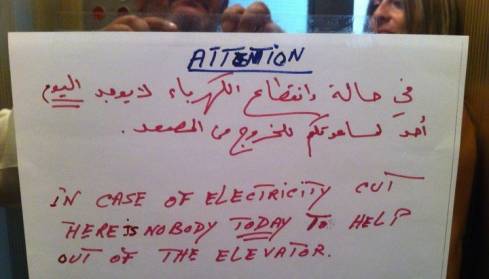 ATTENTION
في حالة إنقطاع الكهرباء لا يوجد اليوم
أحد لمساعدتكم للخروج من المصعد.
IN CASE OF ELECTRICITY CUT
THERE IS NOBODY TODAY TO HELP
OUT OF THE ELEVATOR.